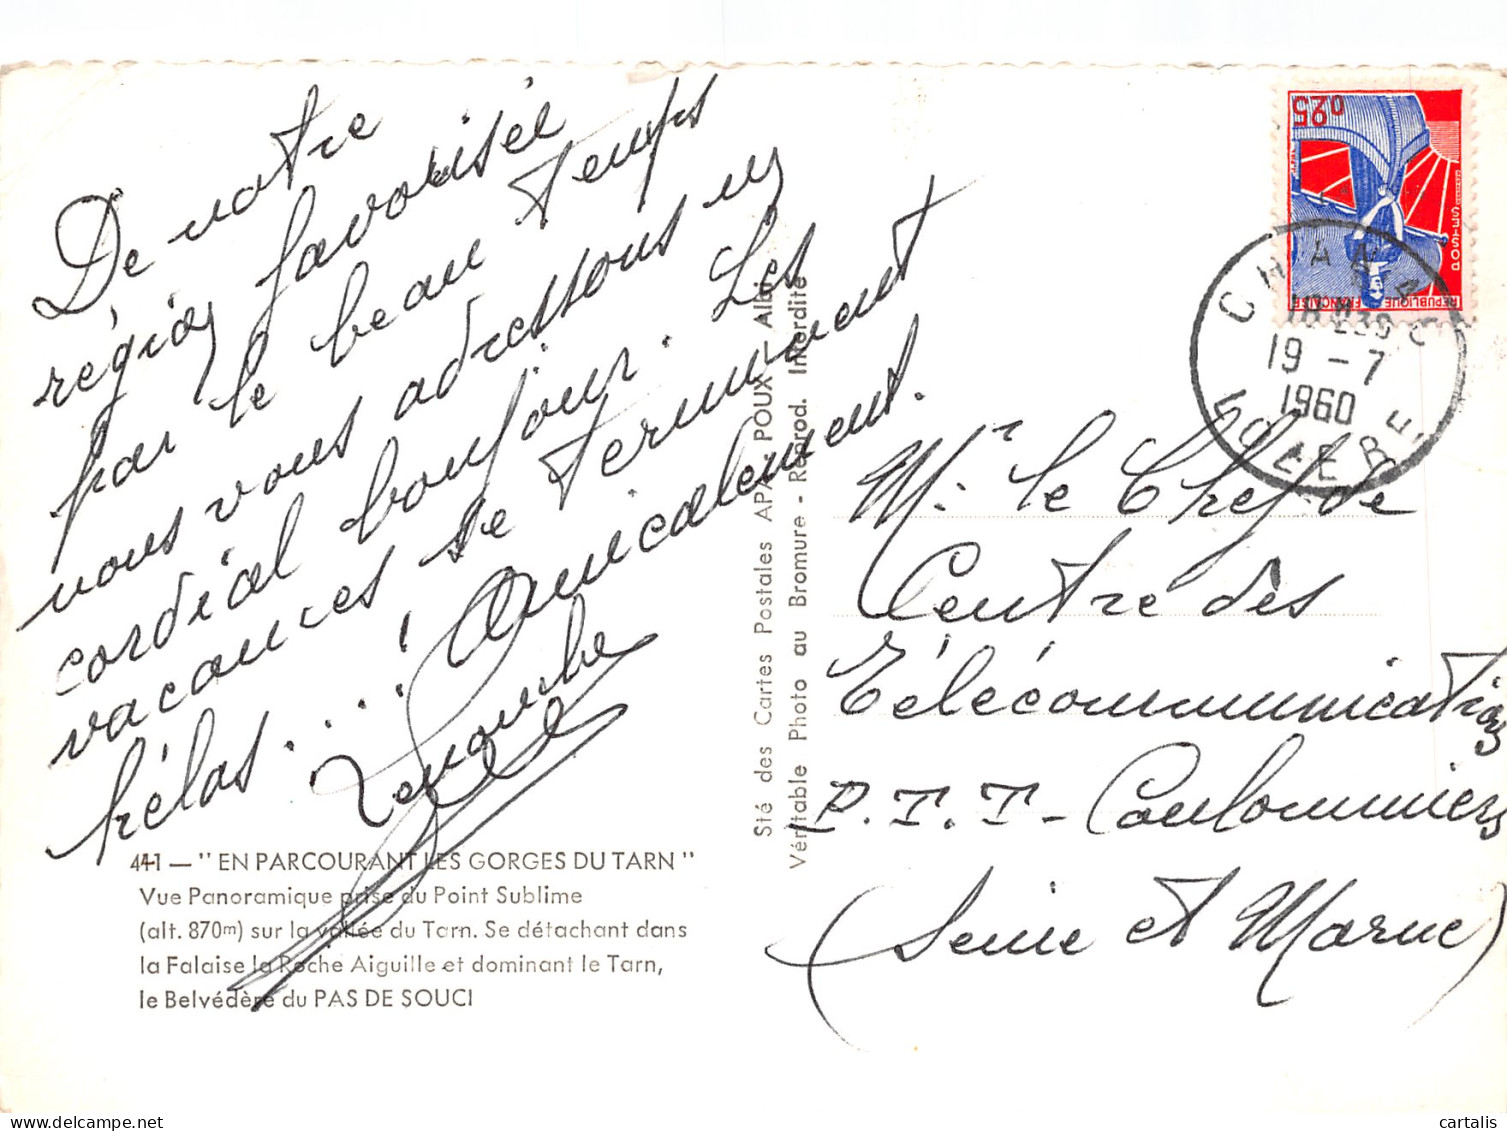 De notre
région favorisée
par le beau temps
nous vous adressons un
cordial bonjour. Les
vacances se terminent
hélas....! Amicalement.
441 — " EN PARCOURANT LES GORGES DU TARN "
Vue Panoramique prise du Point Sublime
(alt. 870m) sur la vallée du Tarn. Se détachant dans
la Falaise la Roche Aiguille et dominant le Tarn,
le Belvédère du PAS DE SOUCI
Sté des Cartes Postales APA - POUX - Albi
Véritable Photo au Bromure - Reprod. Interdite
0,25
REPUBLIQUE FRANÇAISE
POSTES
CHANAC
18H30
19 - 7
1960
LOZERE
Mr le Chef de
Centre des
Télécommunications
P.T.T - Coulommiers
(Seine et Marne)
cartalis
delcampe.net